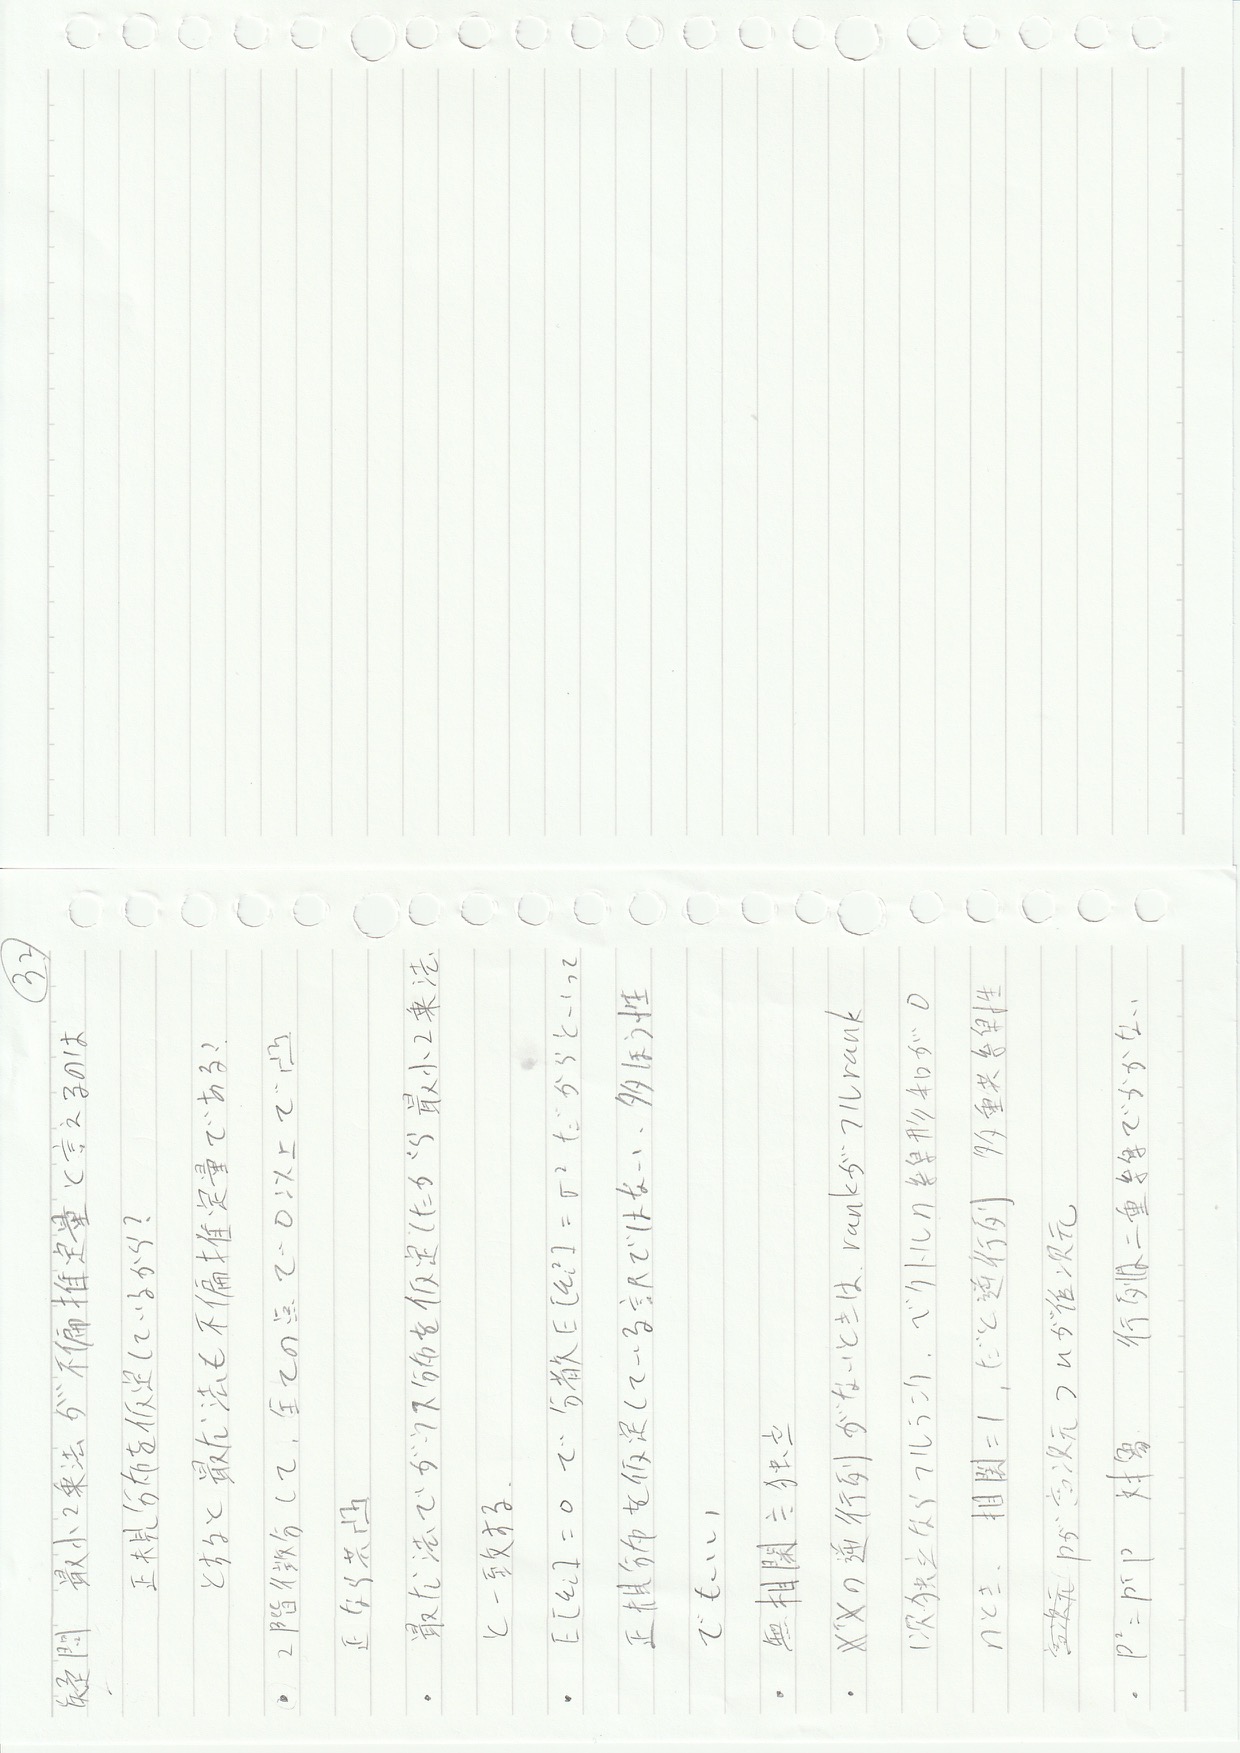 32
疑問 最小2乗法が不偏推定量と言えるのは
正規分布を仮定しているから?
とすると最尤法も不偏推定量である?
・ 2階微分して、全ての点で0以上で凸
正なら共凸
・ 最尤法でガウス分布を仮定したから最小2乗法
と一致する.
・ E[εi] = 0 で 分散E[εi²] = σ² だからといって
正規分布を仮定している訳ではない. 多ほう性
でもいい
・ 無相関≒独立
・ XᵀXの逆行列がないときは. rankがフルrank
1次独立ならフルランク. ベクトルの線形和が0
のとき. 相関=1, だと逆行列 多重共線性
pが高次元 つnが低次元
・ P² = PᵀP 対象 行列は二重線でかかない